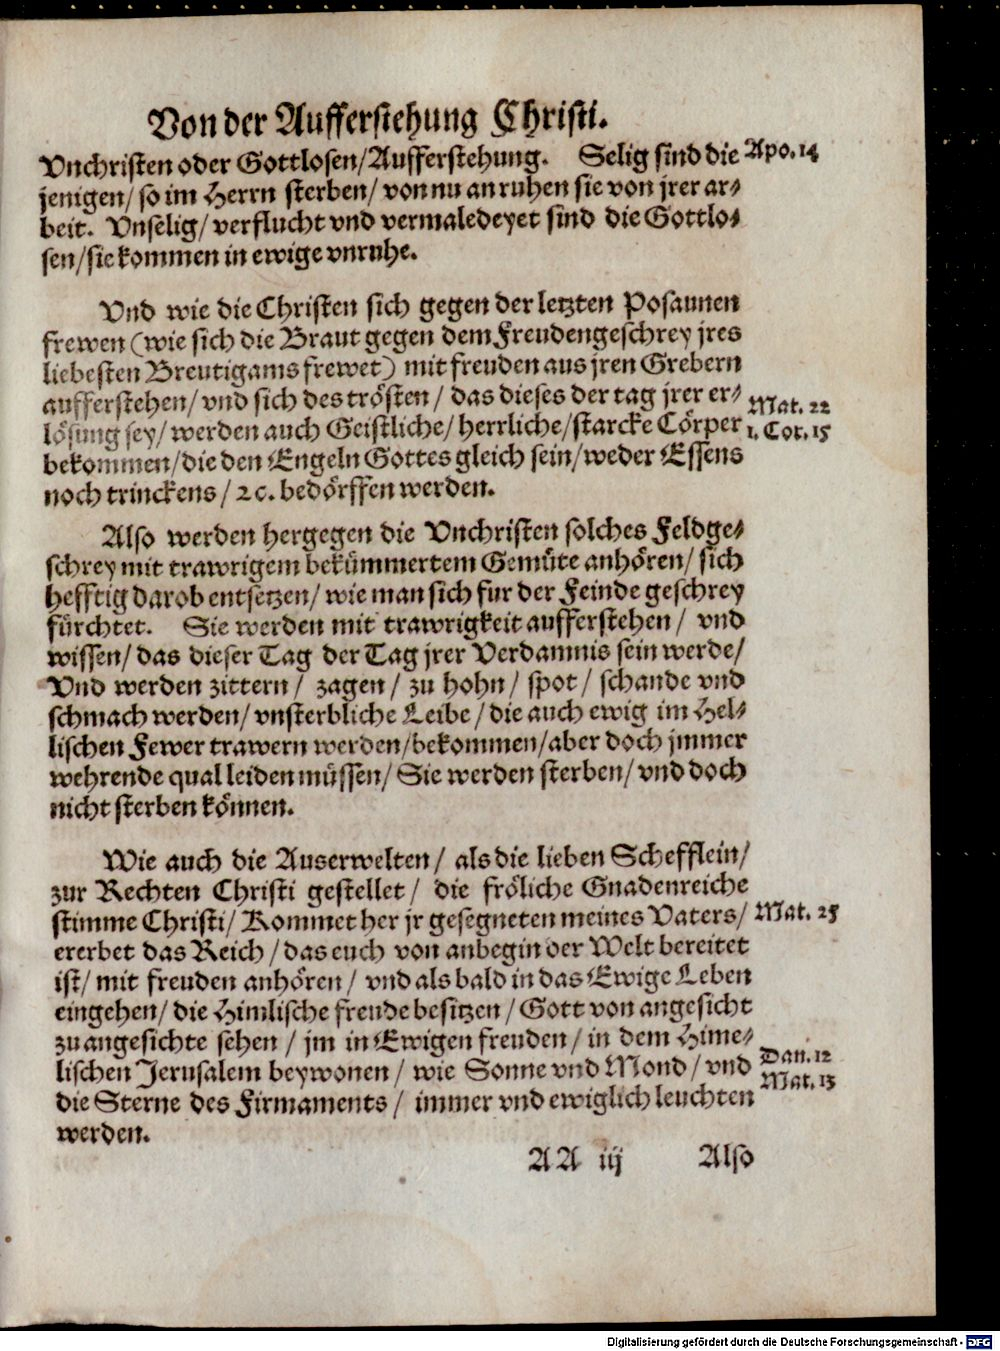 Von der Aufferstehung Christi.
Vnchristen oder Gottlosen/Aufferstehung. Selig sind die Apo. 14
jenigen/ so im Herrn sterben/ von nu an ruhen sie von jrer ar⸗
beit. Vnselig/ verflucht vnd vermaledeyet sind die Gottlo⸗
sen/sie kommen in ewige vnruhe.
Vnd wie die Christen sich gegen der letzten Posaunen
frewen (wie sich die Braut gegen dem Freudengeschrey jres
liebesten Breutigams frewet) mit freuden aus jren Grebern
aufferstehen/ vnd sich des trösten/ das dieses der tag jrer er⸗ Mat. 22
lösung sey/ werden auch Geistliche/ herrliche/starcke Cörper 1. Cor. 15
bekommen/die den Engeln Gottes gleich sein/weder Essens
noch trinckens/ 2c. bedörffen werden.
Also werden hergegen die Vnchristen solches Feldge⸗
schrey mit trawrigem bekümmertem Gemüte anhören/ sich
hefftig darob entsetzen/ wie man sich fur der Feinde geschrey
fürchtet. Sie werden mit trawrigkeit aufferstehen/ vnd
wissen/ das dieser Tag der Tag jrer Verdamnis sein werde/
Vnd werden zittern/ zagen/ zu hohn/ spot/ schande vnd
schmach werden/ vnsterbliche Leibe/ die auch ewig im Hel⸗
lischen Fewer trawern werden/bekommen/aber doch jmmer
wehrende qual leiden müssen/ Sie werden sterben/ vnd doch
nicht sterben können.
Wie auch die Auserwelten/ als die lieben Schefflein/
zur Rechten Christi gestellet/ die fröliche Gnadenreiche
stimme Christi/ Kommet her jr gesegneten meines Vaters/ Mat. 25
ererbet das Reich/ das euch von anbegin der Welt bereitet
ist/ mit freuden anhören/ vnd als bald in das Ewige Leben
eingehen/ die Himlische freude besitzen/ Gott von angesicht
zu angesichte sehen/ jm in Ewigen freuden/ in dem Hime⸗
lischen Jerusalem beywonen/ wie Sonne vnd Mond/ vnd Dan. 12
die Sterne des Firmaments/ immer vnd ewiglich leuchten Mat. 13
werden.
AA iij Also
Digitalisierung gefördert durch die Deutsche Forschungsgemeinschaft - DFG